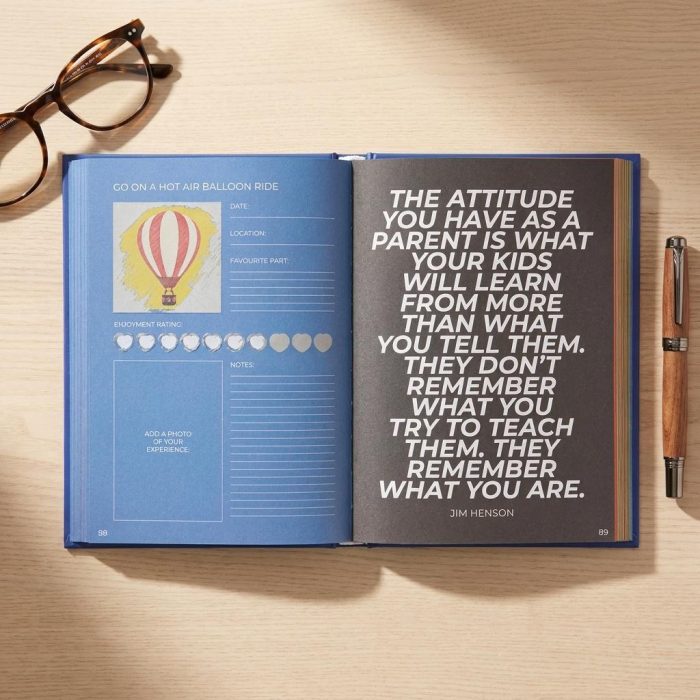 GO ON A HOT AIR BALLOON RIDE
DATE:
LOCATION:
FAVOURITE PART:
ENJOYMENT RATING:
NOTES:
ADD A PHOTO
OF YOUR
EXPERIENCE
98
THE ATTITUDE
YOU HAVE AS A
PARENT IS WHAT
YOUR KIDS
WILL LEARN
FROM MORE
THAN WHAT
YOU TELL THEM.
THEY DON'T
REMEMBER
WHAT YOU
TRY TO TEACH
THEM. THEY
REMEMBER
WHAT YOU ARE.
JIM HENSON
89